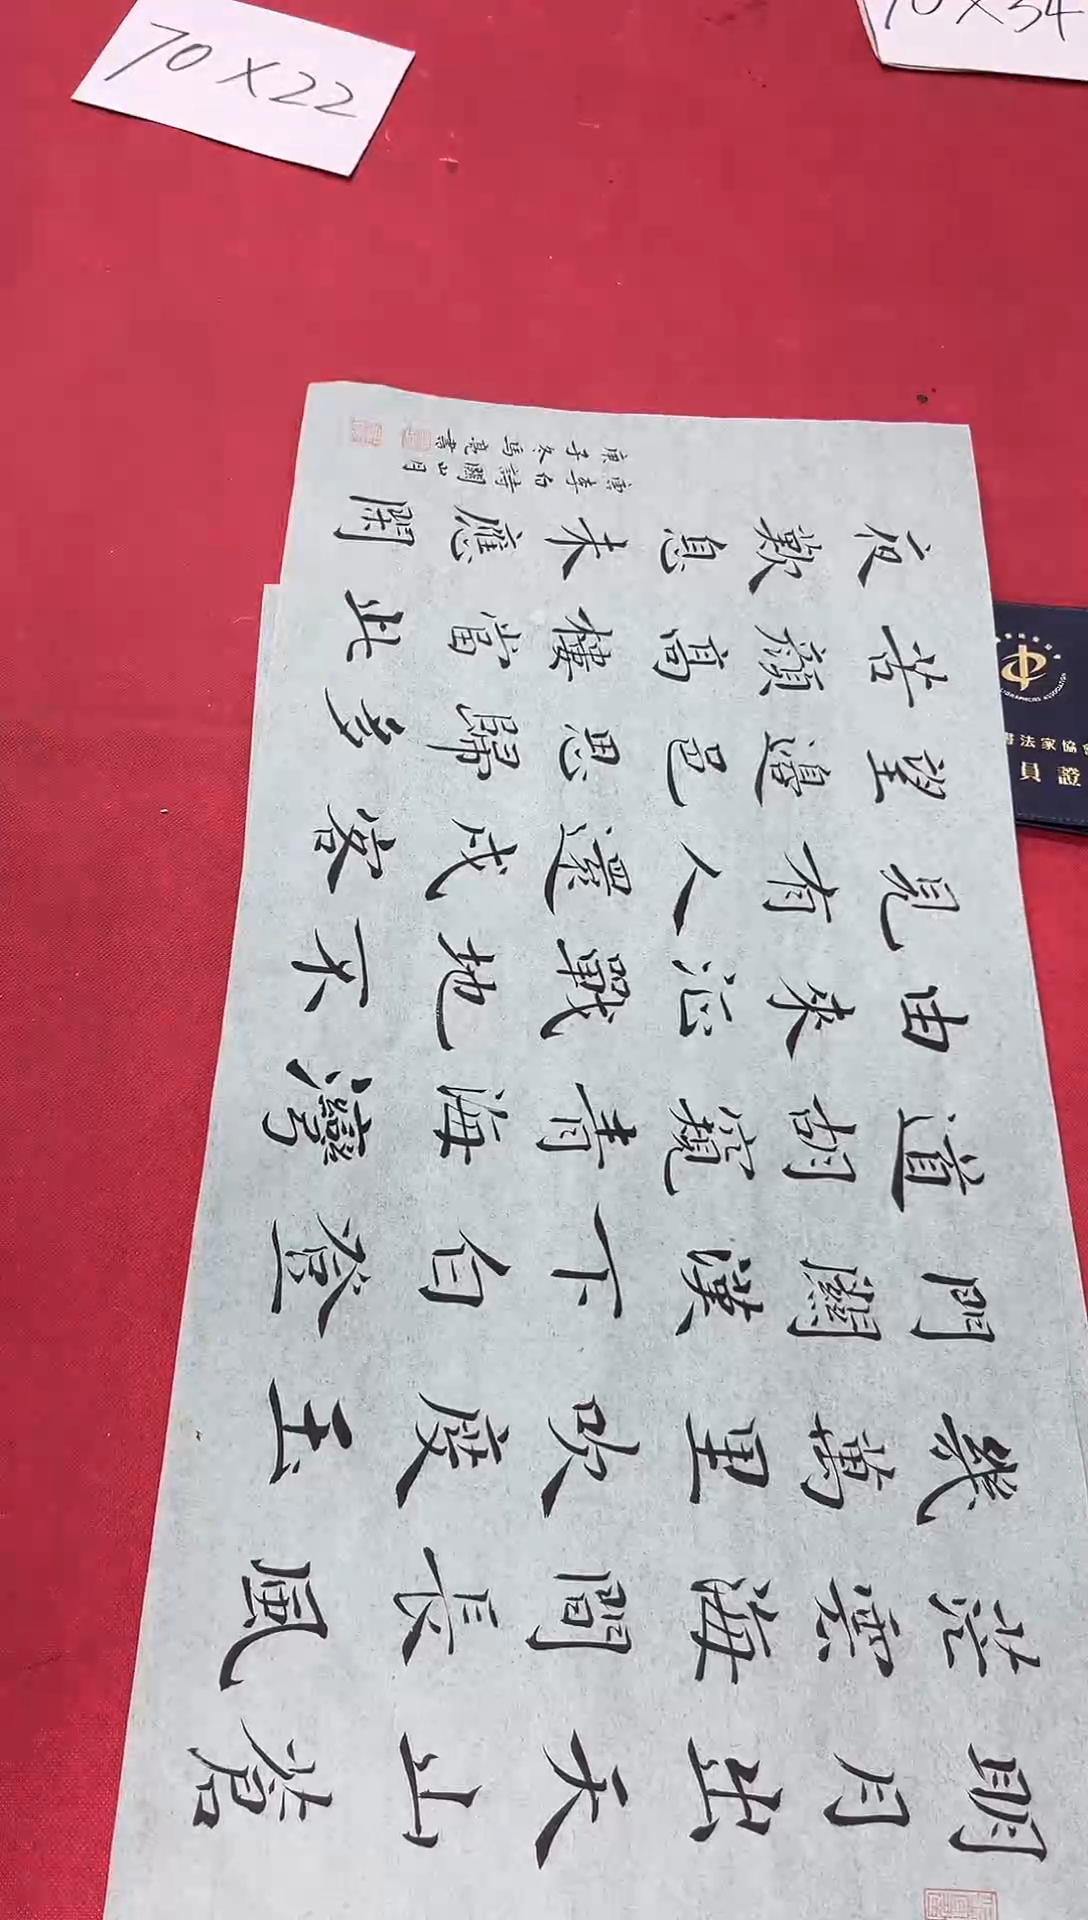 70×22
70×34
明月出天山蒼
茫雲海間長風
幾萬里吹度玉
門關漢下白登
道胡窺青海灣
由來征戰地不
見有人還戍客
望邊邑思歸多
苦顏高樓當此
夜歎息未應閑
李白詩關山月
庚子冬馬亮書
書法家協會
員證